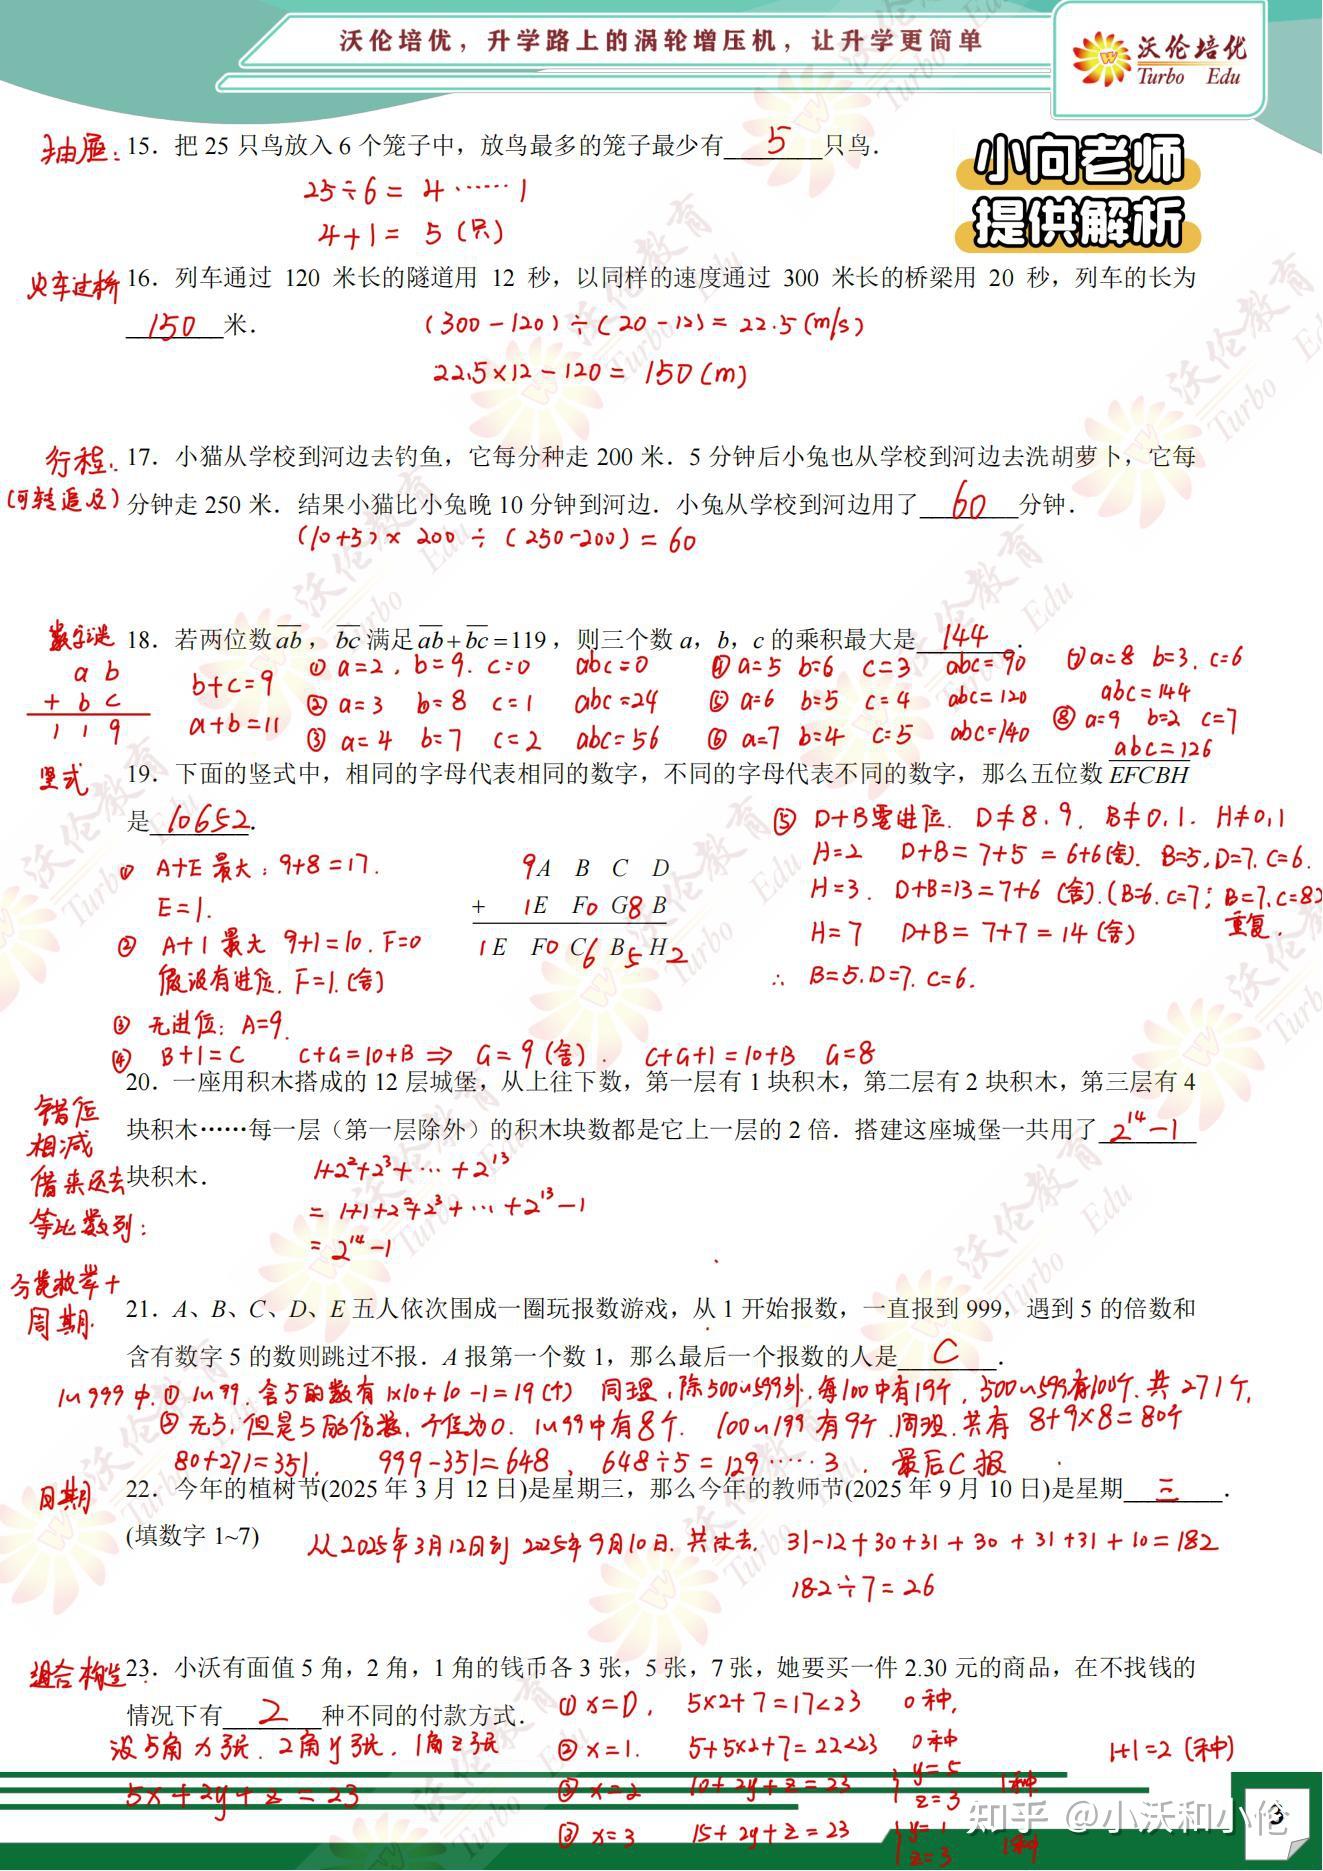 沃伦培优，升学路上的涡轮增压机，让升学更简单
沃伦培优
Turbo Edu
小向老师
提供解析
抽屉：15．把 25 只鸟放入 6 个笼子中，放鸟最多的笼子最少有 5 只鸟．
25÷6＝4……1
4+1＝5（只）
火车过桥 16．列车通过 120 米长的隧道用 12 秒，以同样的速度通过 300 米长的桥梁用 20 秒，列车的长为
150 米．
（300－120）÷（20－12）＝22.5（m/s）
22.5×12－120＝150（m）
行程. 17．小猫从学校到河边去钓鱼，它每分种走 200 米．5 分钟后小兔也从学校到河边去洗胡萝卜，它每
（可转追及）分钟走 250 米．结果小猫比小兔晚 10 分钟到河边．小兔从学校到河边用了 60 分钟．
（10+5）×200÷（250-200）＝60
数字谜 18．若两位数 ab，bc 满足 ab+bc=119，则三个数 a，b，c 的乘积最大是 144．
a b
+ b c
1 1 9
b+c=9
a+b=11
① a=2, b=9. c=0 abc=0
② a=3 b=8 c=1 abc=24
③ a=4 b=7 c=2 abc=56
④ a=5 b=6 c=3 abc=90
⑤ a=6 b=5 c=4 abc=120
⑥ a=7 b=4 c=5 abc=140
⑦ a=8 b=3. c=6
abc=144
⑧ a=9 b=2 c=7
abc=126
竖式 19．下面的竖式中，相同的字母代表相同的数字，不同的字母代表不同的数字，那么五位数 EFCBH
是 10652．
① A+E 最大：9+8=17.
E=1.
② A+1 最大 9+1=10. F=0
假设有进位. F=1.（舍）
③ 无进位：A=9.
④ B+1=C C+G=10+B ⇒ G=9（舍）. C+G+1=10+B G=8
9A B C D
+ 1E F0 G8 B
1E F0 C6 B5 H2
⑤ D+B要进位. D≠8、9. B≠0,1. H≠0,1
H=2 D+B=7+5=6+6(舍). B=5, D=7. C=6.
H=3. D+B=13=7+6（舍）.（B=6. C=7；B=7. C=8）
重复.
H=7 D+B=7+7=14（舍）
∴ B=5. D=7. C=6.
20．一座用积木搭成的 12 层城堡，从上往下数，第一层有 1 块积木，第二层有 2 块积木，第三层有 4
块积木……每一层（第一层除外）的积木块数都是它上一层的 2 倍．搭建这座城堡一共用了 2¹⁴－1
块积木．
错位
相减
借来还去
等比数列：
1+2²+2³+…+2¹³
=1+1+2²+2³+…+2¹³－1
=2¹⁴－1
分类枚举+
周期.
21．A、B、C、D、E 五人依次围成一圈玩报数游戏，从 1 开始报数，一直报到 999，遇到 5 的倍数和
含有数字 5 的数则跳过不报．A 报第一个数 1，那么最后一个报数的人是 C．
1~999中.① 1~99. 含5的数有 1×10+10-1=19(个) 同理，除500~599外，每100中有19个，500~599有100个. 共271个.
② 无5，但是5的倍数，个位为0. 1~99中有8个. 100~199有9个. 同理. 共有 8+9×8=80个
80+271=351. 999-351=648, 648÷5=129……3. 最后C报
周期 22．今年的植树节(2025 年 3 月 12 日)是星期三，那么今年的教师节(2025 年 9 月 10 日)是星期 三．
(填数字 1~7)
从2025年3月12日到2025年9月10日. 共过去. 31-12+30+31+30+31+31+10=182
182÷7=26
组合构造. 23．小沃有面值 5 角，2 角，1 角的钱币各 3 张，5 张，7 张，她要买一件 2.30 元的商品，在不找钱的
情况下有 2 种不同的付款方式．
设5角x张. 2角y张. 1角z张
5x+2y+z=23
① x=0, 5×2+7=17<23 0种,
② x=1. 5+5×2+7=22<23 0种
③ x=2 10+2y+z=23 y=5 z=3 1种
③ x=3 15+2y+z=23 y=1 z=3 1种
1+1=2（种）
知乎 @小沃和小伦
3